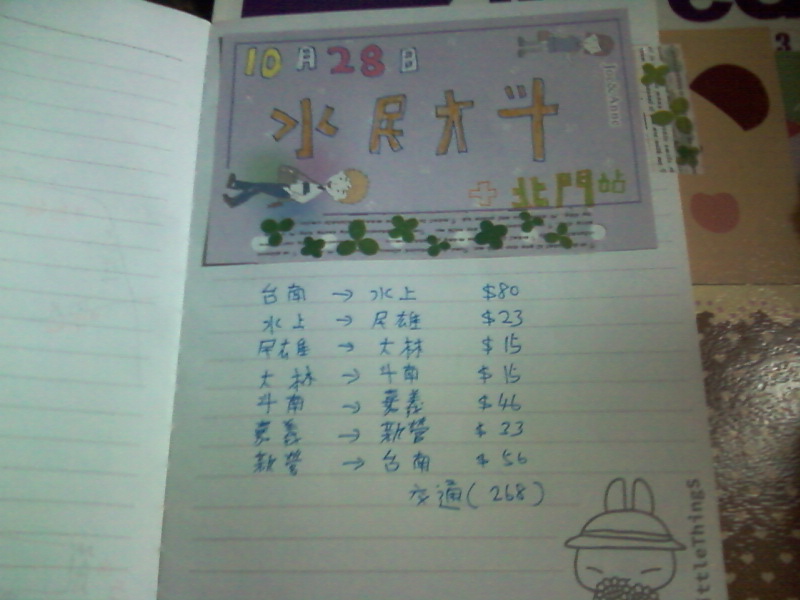 10月28日
水民大斗
+北門站
Jo & Anne
台南 → 水上 $80
水上 → 民雄 $23
民雄 → 大林 $15
大林 → 斗南 $15
斗南 → 嘉義 $46
嘉義 → 新營 $33
新營 → 台南 $56
交通(268)
ittleThings
3